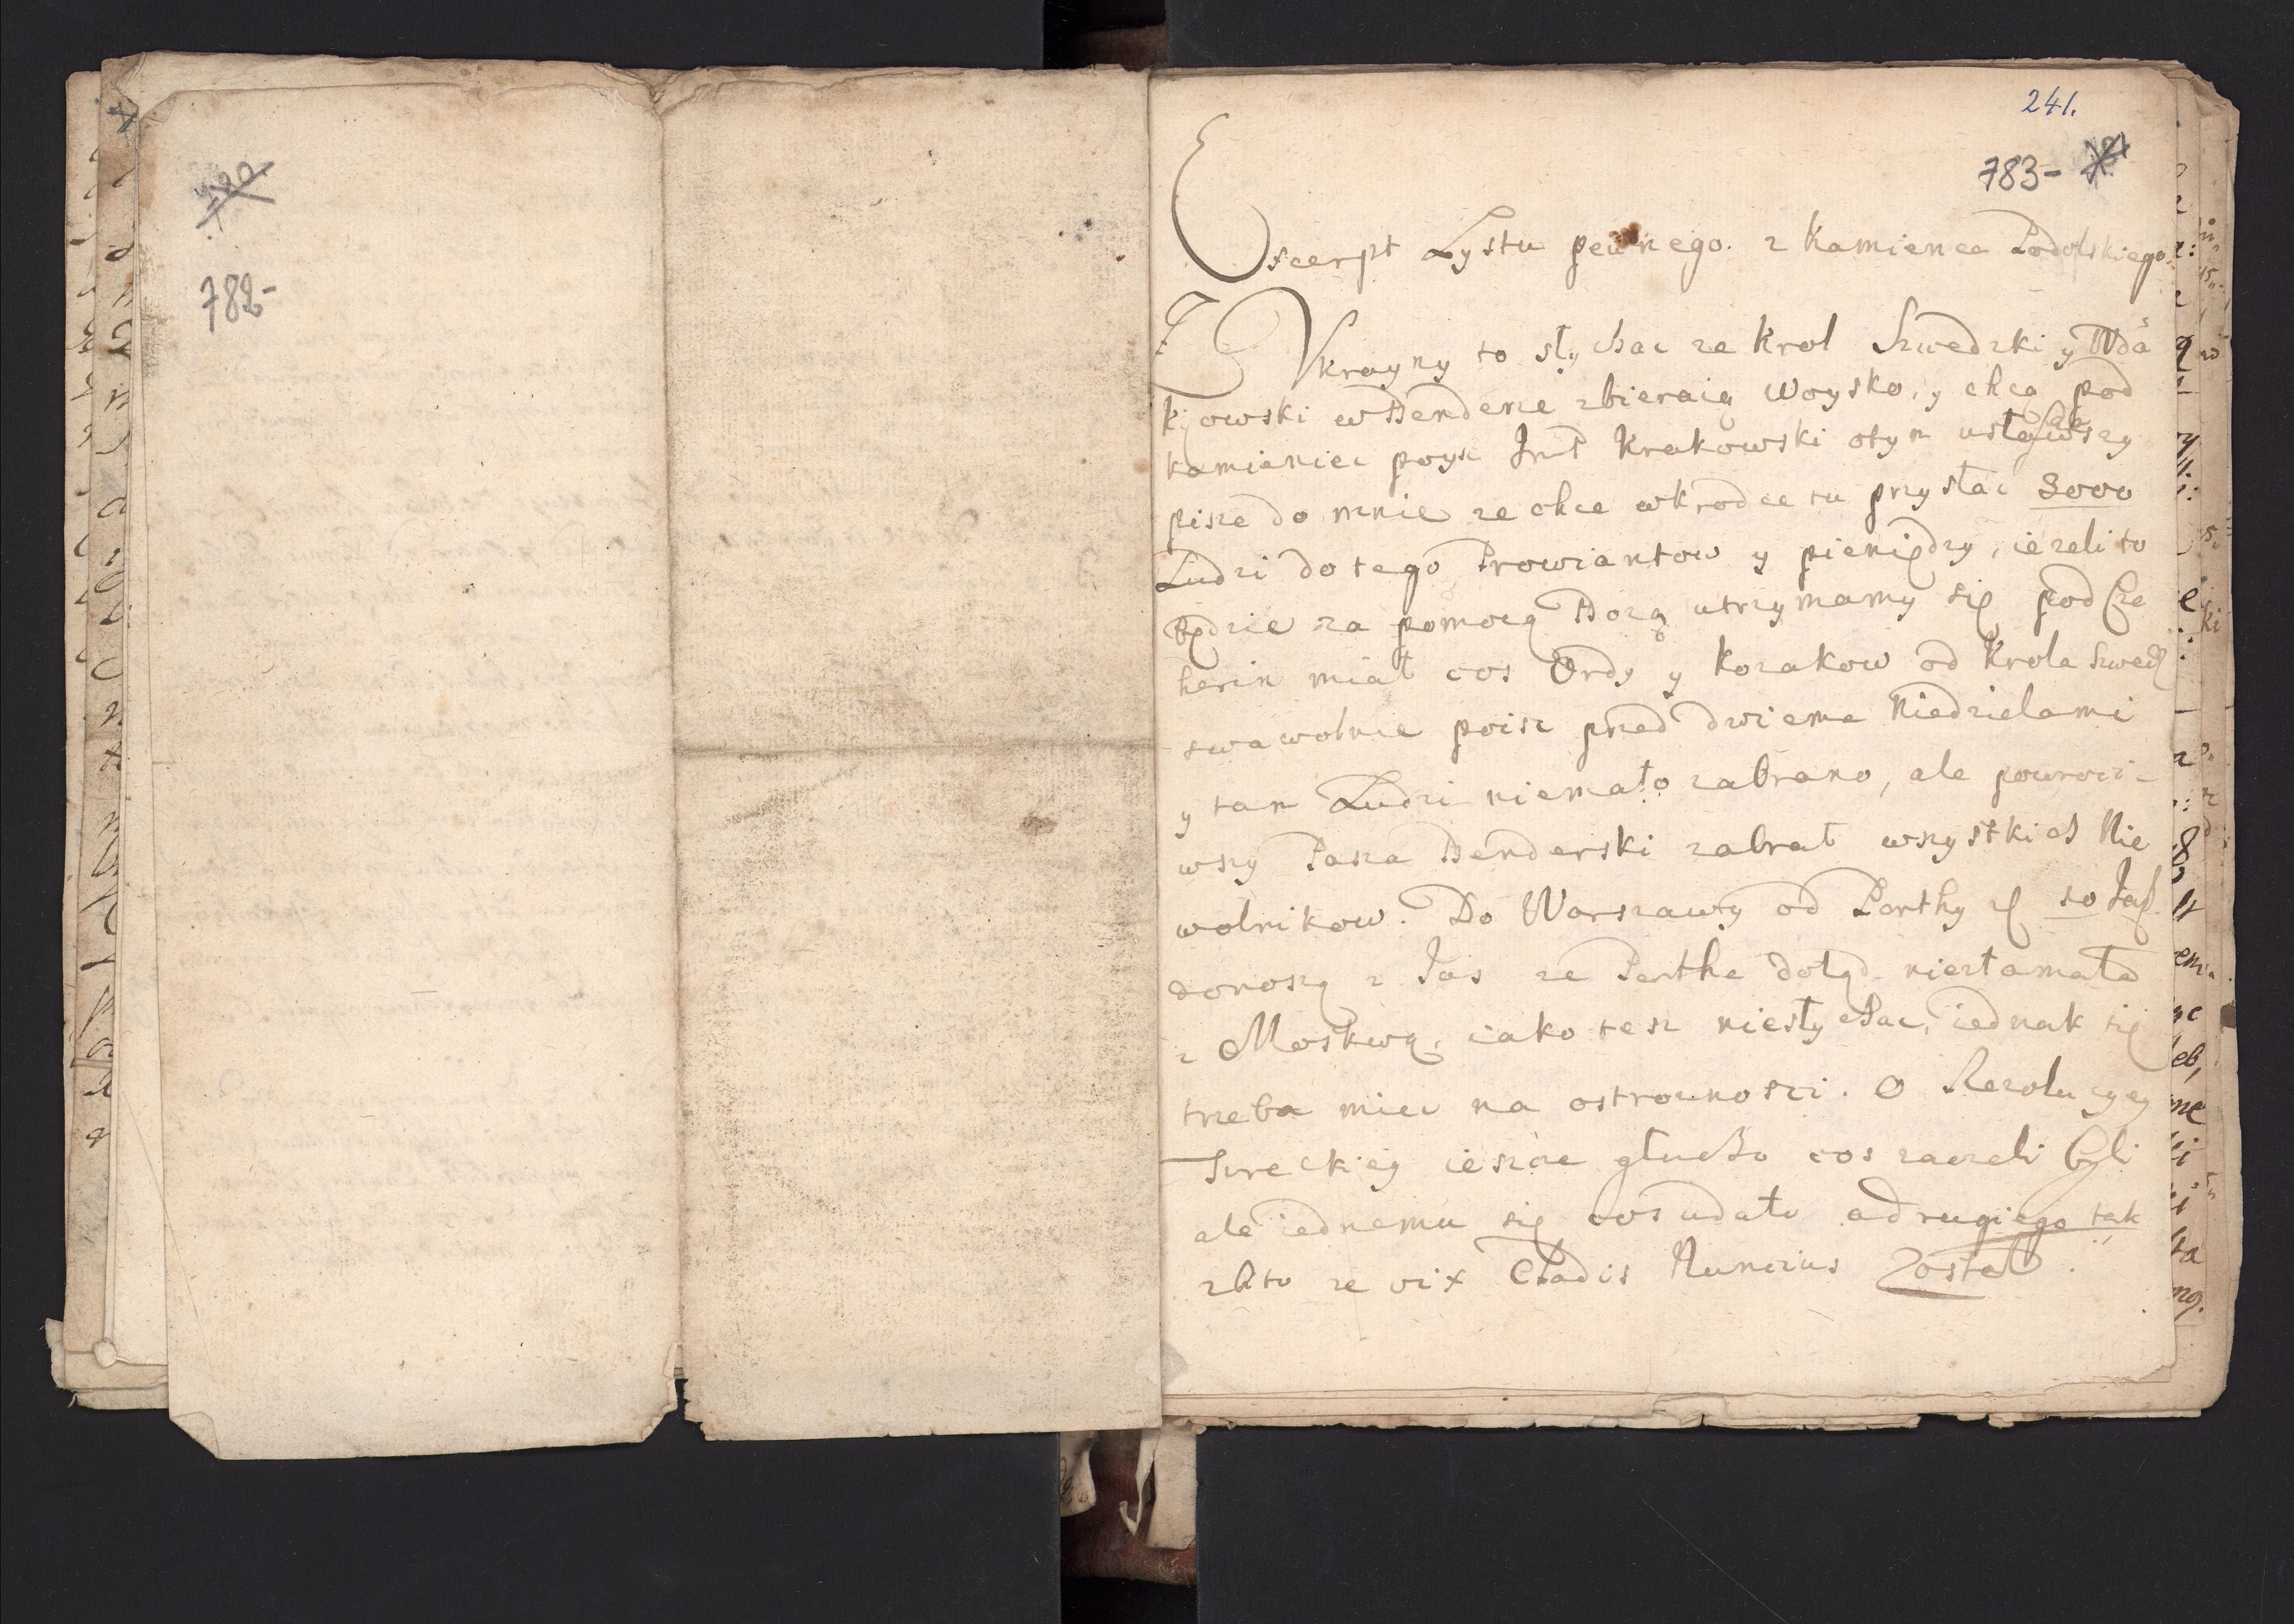 782-
241.
783-
Excerpt Lystu pewnego. z Kamienca Podolskiego.
Z Vkrayny to słychac ze Krol Szwedzki y Wda
kijowski w Benderze zbieraią Woysko, y chcą pod
kamieniec poysc Jmć Krakowski otym usłyszawszy
pisze do mnie ze chce wkrodce tu przysłac 3000
Ludzi do tego Prowiantow y pieniędzy, iezeli to
będzie za pomocą Bozą utrzymamy się pod Cze
herin miał cos Ordy y kozakow od Krola Szwedz
swawolnie poisc przed dwiema Niedzielami
y tam Ludzi niemało zabrano, ale powroci-
wszy Pasza Benderski zabrał wszystkich Nie
wolnikow. Do Warszawy od Porthy
donoszą z Jas ze Portha dotąd niezłamała
z Moskwą, iako tesz niesłychac, iednak się
trzeba miec na ostroznosci. O Rezolucyey
Tureckiey ieszcze głucho cos zaczeli byli
ale iednemu się cos udało a drugiego tak
zbito ze vix Cladis Nuncius Został.